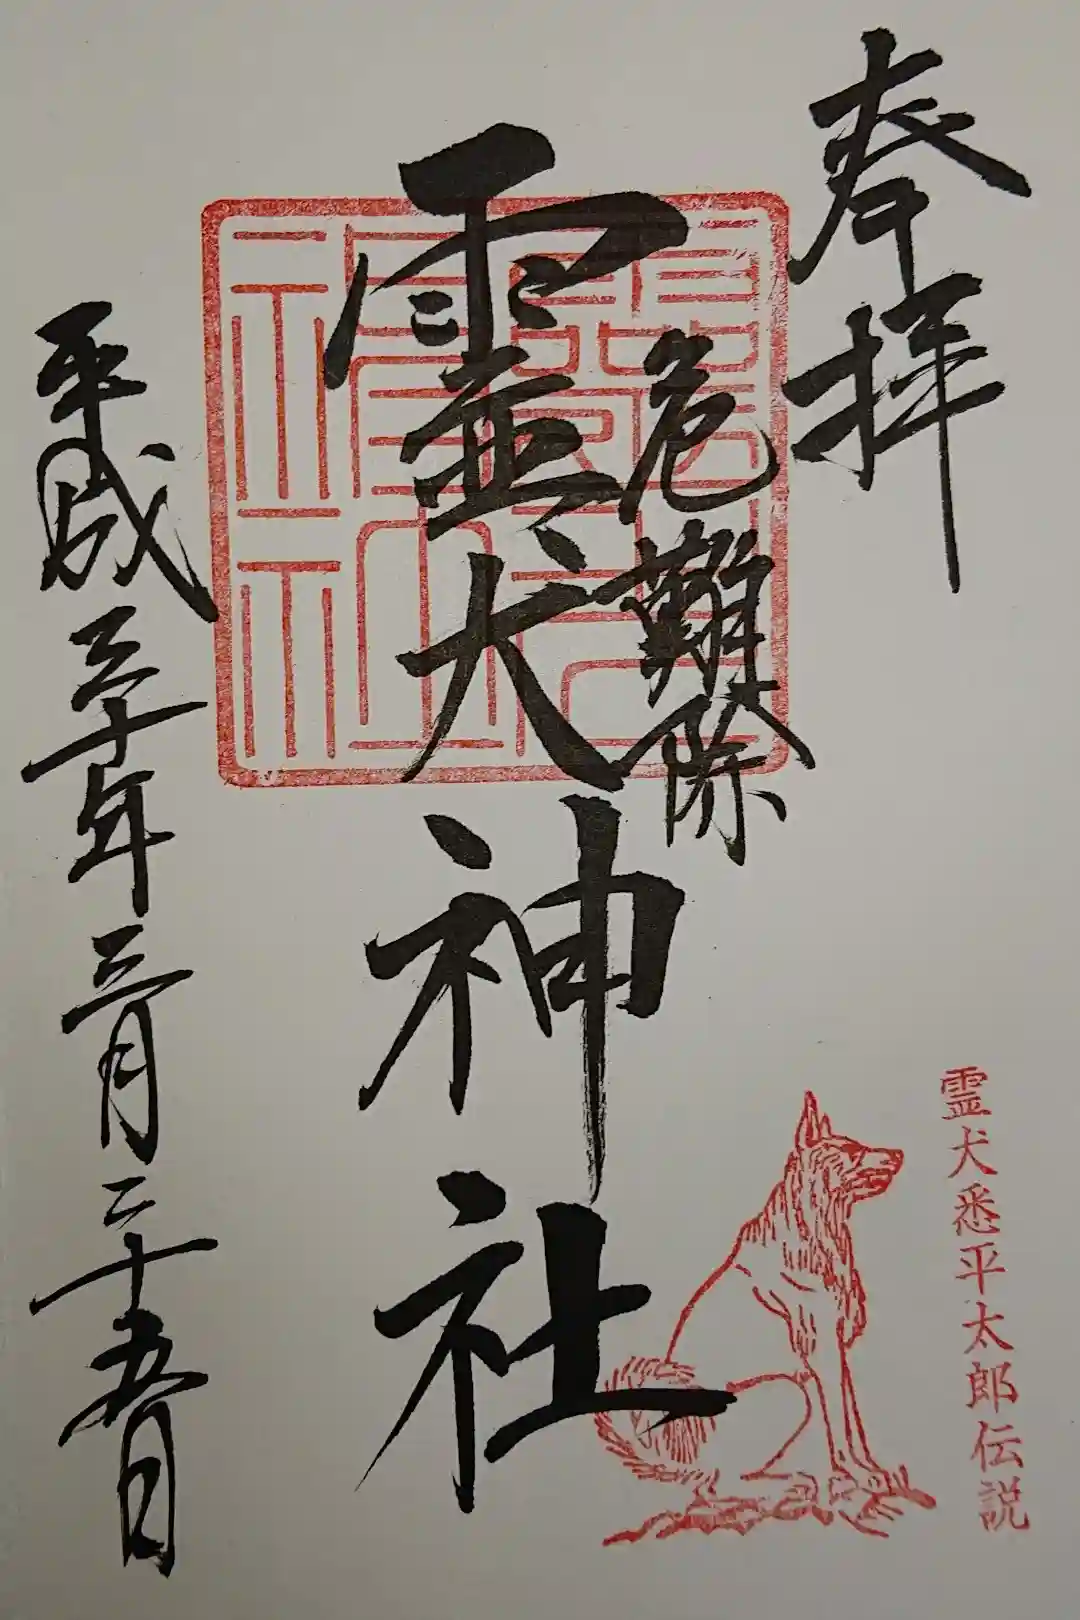 奉拝
危難除
霊犬神社
平成三十年三月二十五日
霊犬悉平太郎伝説